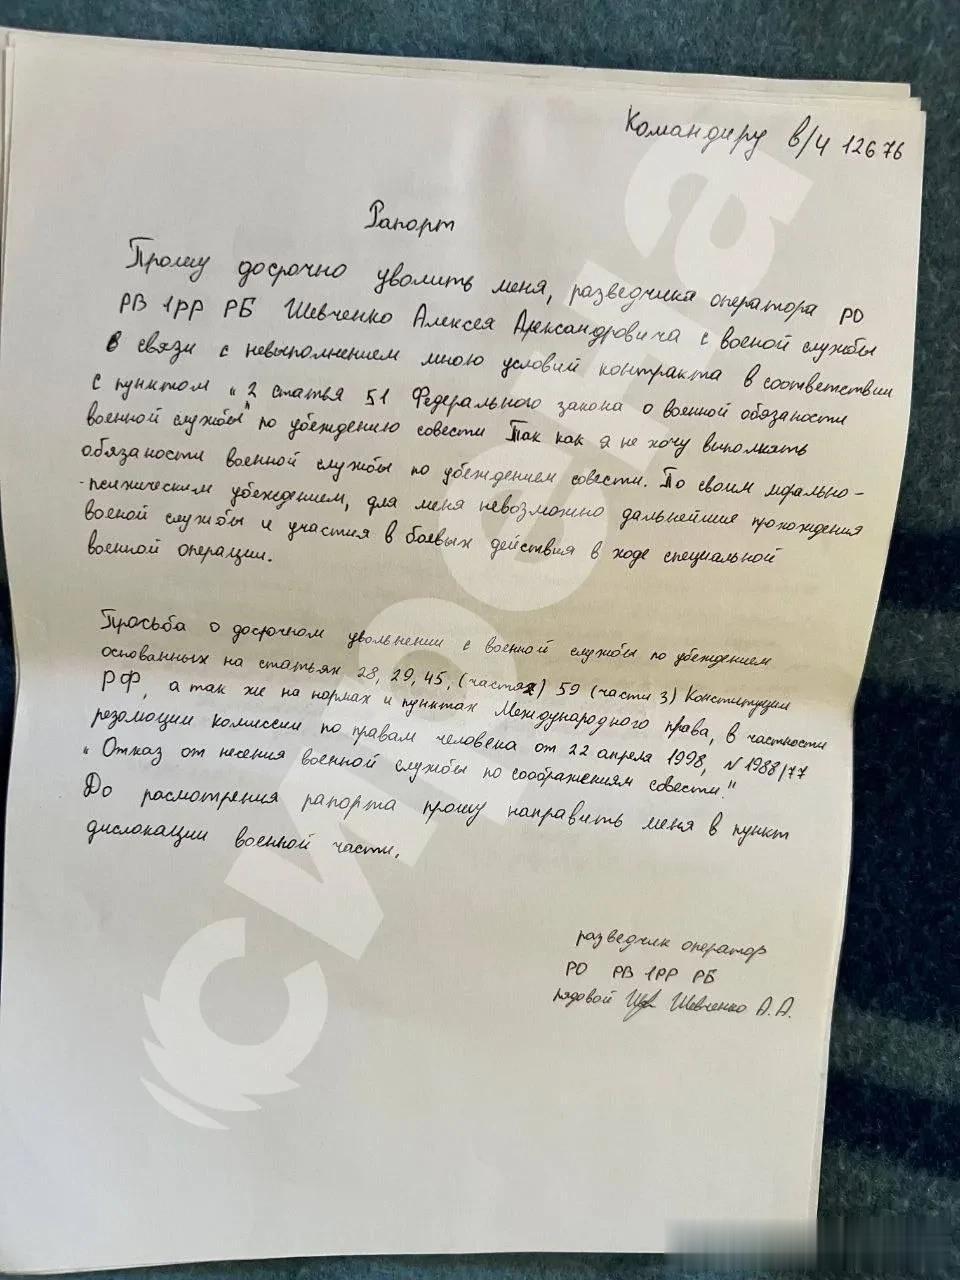 Командиру в/ч 12676
Рапорт
Прошу досрочно уволить меня, разведчика оператора РО
РВ 1РР РБ Шевченко Алексея Александровича с военой службы
в связи с невыполнением мною условий контракта в соответствии
с пунктом "2 статья 51 Федерального закона о военной обязаности
военной службы" по убеждению совести Так как я не хочу выполнять
обязаности военной службы по убеждением совести. По своим морально-
-психическим убеждением, для меня невозможно дальнейшие прохождения
военой службы и участия в боевых действия в ходе специальной
военной операции.
Просьба о досрочном увольнении с военной службы по убеждением
основанных на статьях 28, 29, 45, (частях) 59 (части 3) Конституции
РФ, а так же на нормах и пунктах Международного права, в частности
резолюции комиссии по правам человека от 22 апреля 1998, N 1988/77
"Отказ от несения военной службы по соображениям совести."
До расмотрения рапорта прошу направить меня в пункт
дислокации военной части.
разведчик оператор
РО РВ 1РР РБ
рядовой Шевченко А.А.
сирена